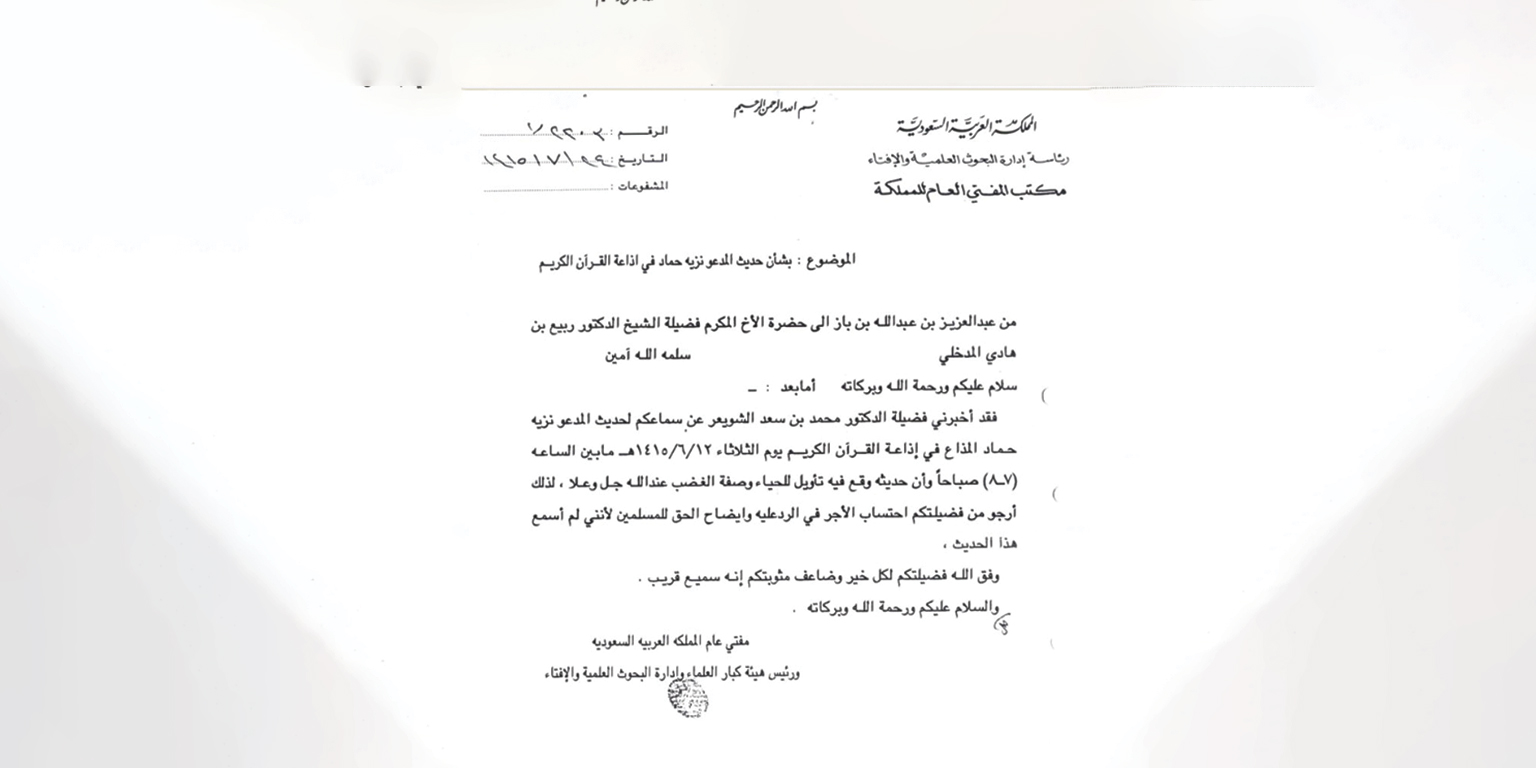 بسم الله الرحمن الرحيم
المملكة العربية السعودية
رئاسة إدارة البحوث العلمية والإفتاء
مكتب المفتي العام للمملكة
الرقم : ٢٢٠٣/١
التاريخ : ١٤١٥/٧/٢٩
المشفوعات :
الموضوع : بشأن حديث المدعو نزيه حماد في اذاعة القرآن الكريم
من عبدالعزيز بن عبدالله بن باز الى حضرة الأخ المكرم فضيلة الشيخ الدكتور ربيع بن
هادي المدخلي سلمه الله آمين
سلام عليكم ورحمة الله وبركاته أمابعد : ــ
فقد أخبرني فضيلة الدكتور محمد بن سعد الشويعر عن سماعكم لحديث المدعو نزيه
حماد المذاع في إذاعة القرآن الكريم يوم الثلاثاء ١٤١٥/٦/١٢هـ مابين الساعه
(٧ــ٨) صباحاً وأن حديثه وقع فيه تأويل للحياء وصفة الغضب عندالله جل وعلا ، لذلك
أرجو من فضيلتكم احتساب الأجر في الردعليه وايضاح الحق للمسلمين لأنني لم أسمع
هذا الحديث ،
وفق الله فضيلتكم لكل خير وضاعف مثوبتكم إنه سميع قريب .
والسلام عليكم ورحمة الله وبركاته .
مفتي عام المملكه العربيه السعوديه
ورئيس هيئة كبار العلماء وإدارة البحوث العلمية والإفتاء